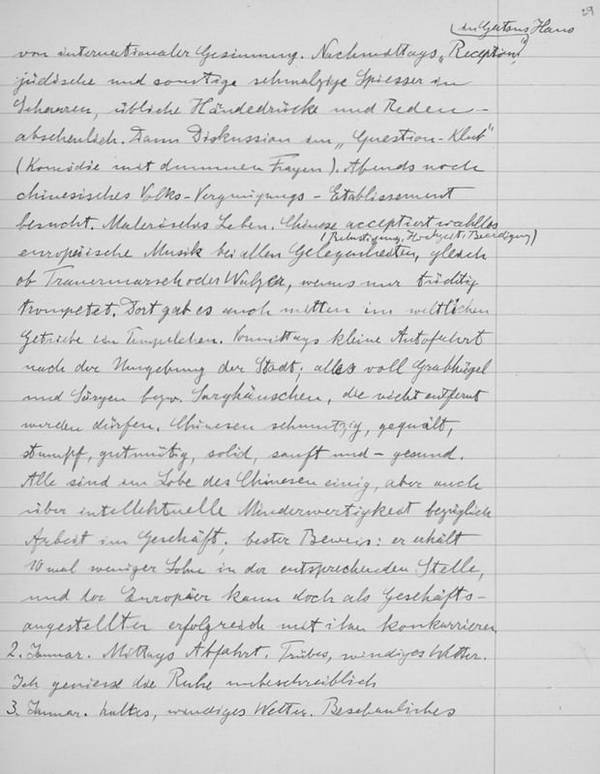 29
(in Gattons Haus
von internationaler Gesinnung. Nachmittags „Reception",
jüdische und sonstige schmalzige Spiesser in
Scharen, übliche Händedrücke und Reden -
abscheulich. Dann Diskussion im „Question-Klub"
(Komödie mit dummen Fragen). Abends noch
chinesisches Volks-Vergnügungs-Etablissement
besucht. Malerisches Leben. Chinese acceptiert wahllos
(Belustigung, Hochzeit, Beerdigung)
europäische Musik bei allen Gelegenheiten, gleich
ob Trauermarsch oder Walzer, wenns nur tüchtig
trompetet. Dort gab es auch mitten im weltlichen
Getriebe ein Tempelchen. Vormittags kleine Autofahrt
nach der Umgebung der Stadt; alles voll Grabhügel
und Särgen bezw. Sarghäuschen, die nicht entfernt
werden dürfen. Chinesen schmutzig, gequält,
stumpf, gutmütig, solid, sanft und - gesund.
Alle sind im Lobe des Chinesen einig, aber auch
über intellektuelle Minderwertigkeit bezüglich
Arbeit im Geschäft; bester Beweis: er erhält
10 mal weniger Lohn in der entsprechenden Stelle,
und der Europäer kann doch als Geschäfts-
angestellter erfolgreich mit ihm konkurrieren
2. Januar. Mittags Abfahrt. Trübes, windiges Wetter.
Ich geniesse die Ruhe unbeschreiblich
3. Januar. kaltes, windiges Wetter. Beschauliches